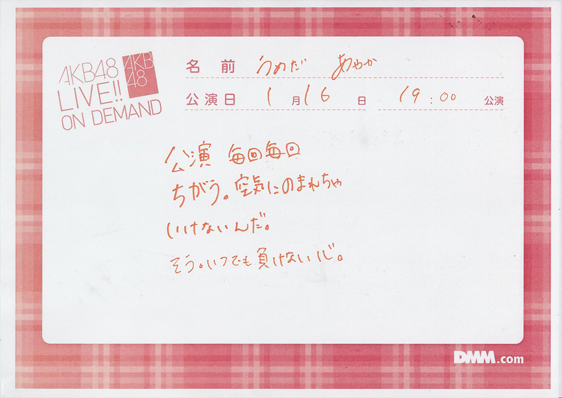 AKB48
LIVE!!
ON DEMAND
AKB
48
名前 うめだ あやか
公演日 1月16日 19:00 公演
公演 毎回毎回
ちがう。空気にのまれちゃ
いけないんだ。
そう。いつでも負けない心。
DMM.com